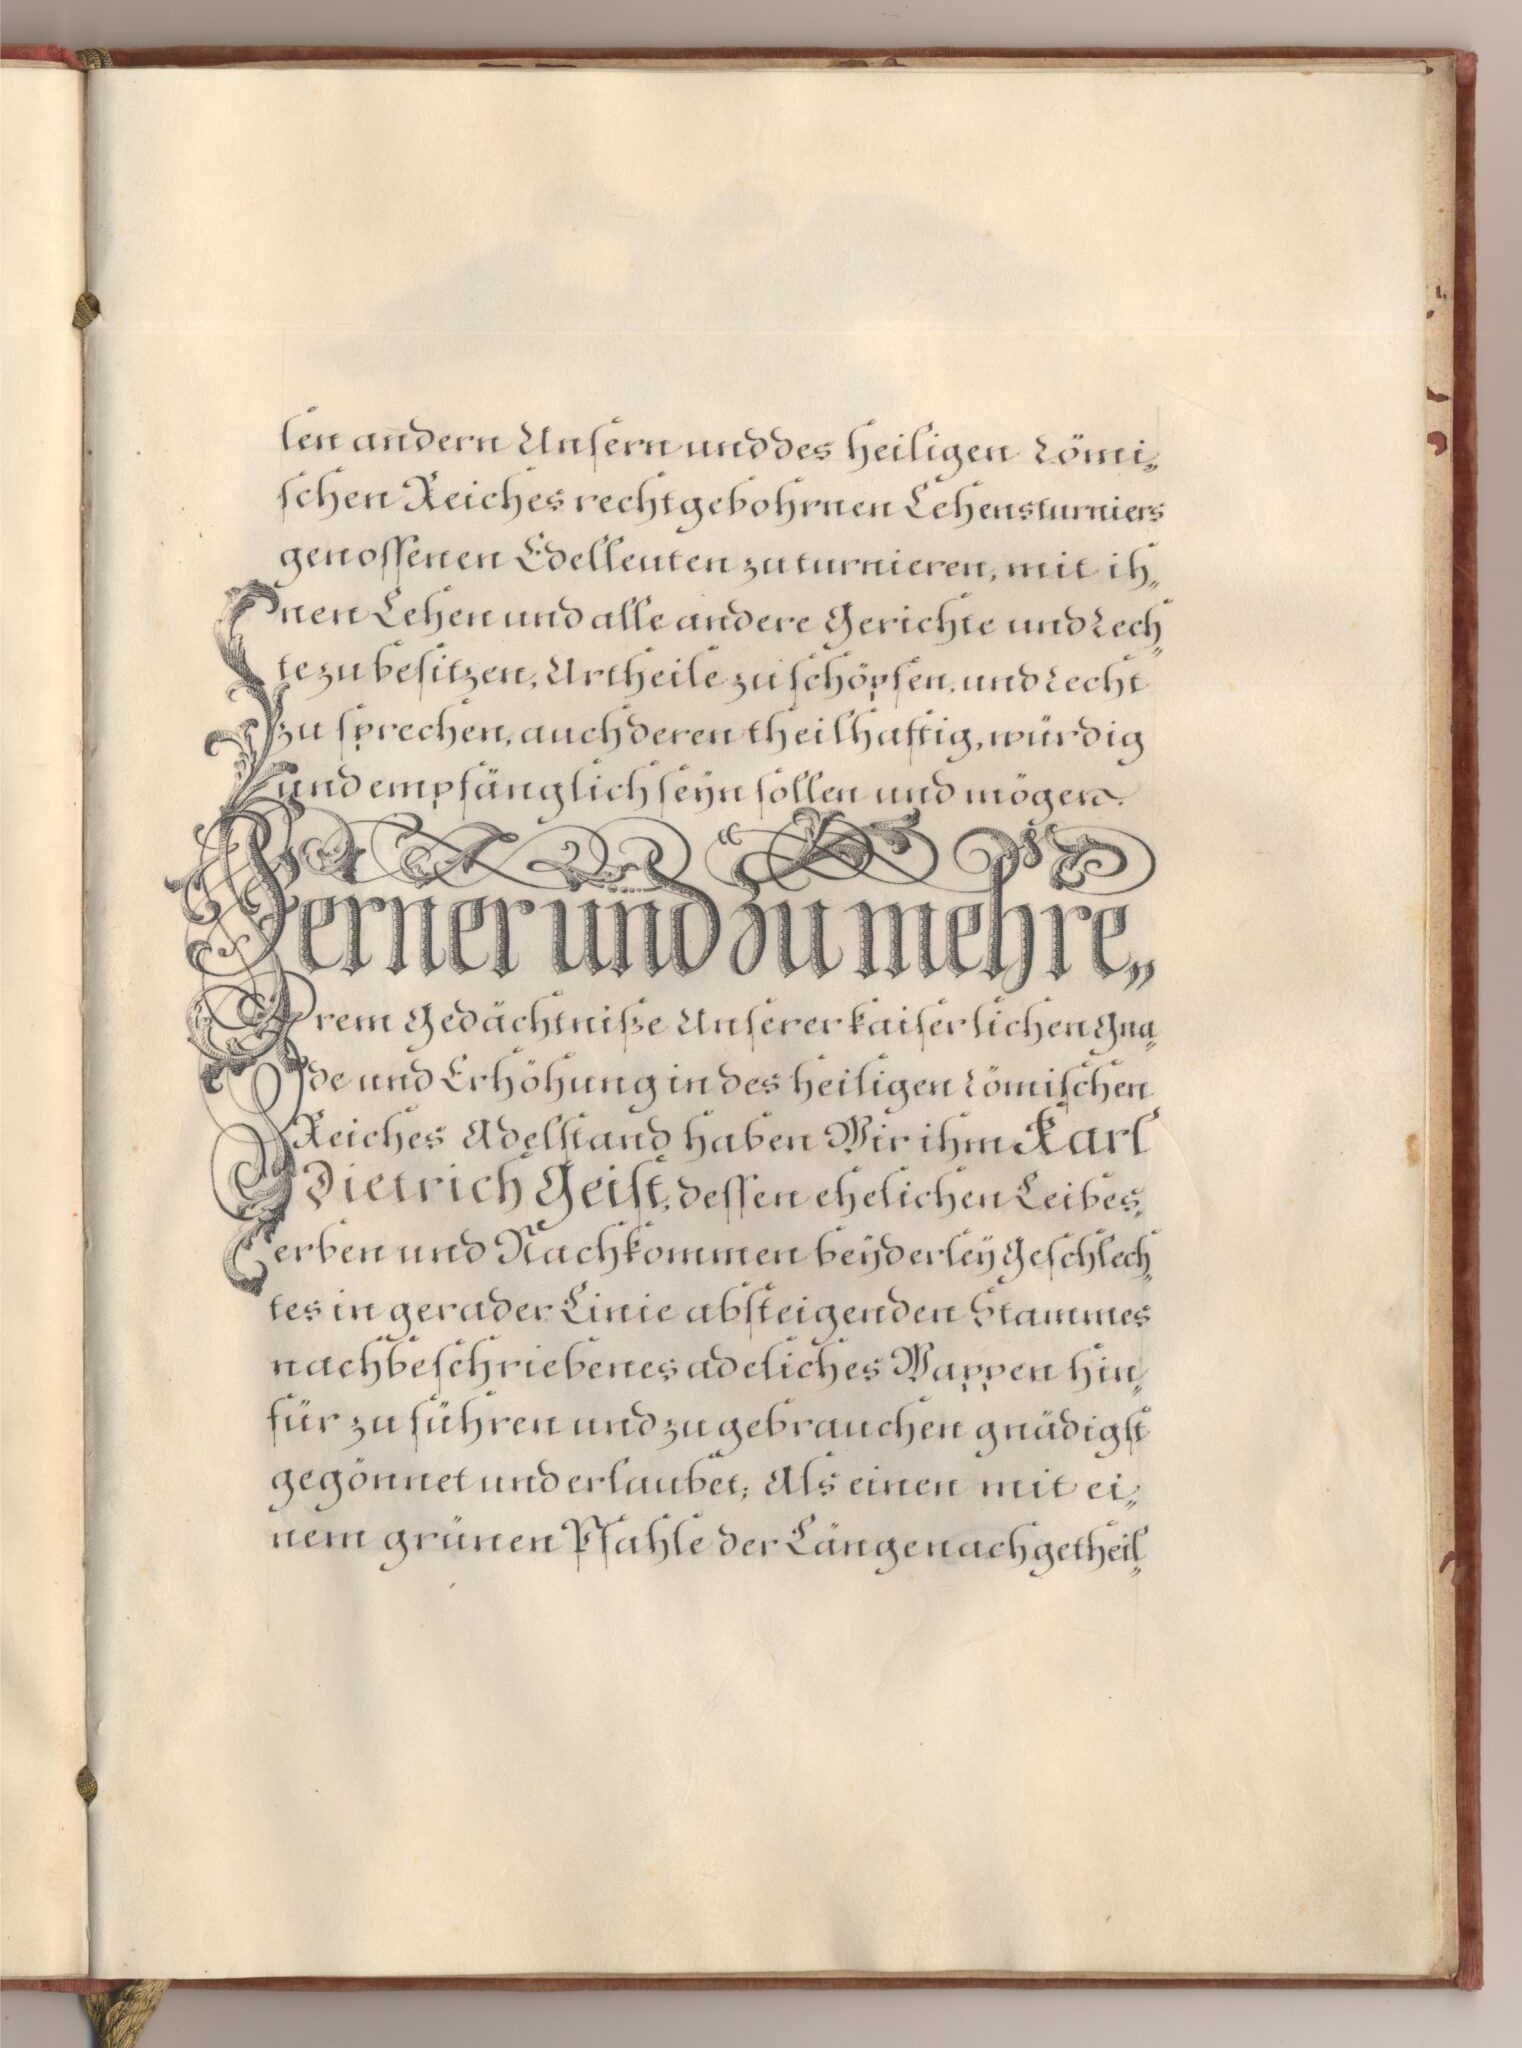 len andern Unsern und des heiligen römi„
schen Reiches rechtgebohrnen Lehensturniers
genossenen Edelleuten zu turnieren, mit ih„
nen Lehen und alle andere Gerichte und rech„
te zu besitzen, Urtheile zu schöpfen, und recht
zu sprechen, auch deren theilhaftig, würdig
und empfänglich seÿn sollen und mögen.
Ferner und zu mehre„
rem Gedächtniße Unserer kaiserlichen Gna„
de und Erhöhung in des heiligen römischen
Reiches Adelstand haben Wir ihm Karl
Dietrich Geist, dessen ehelichen Leibes„
erben und Nachkommen beÿderleÿ Geschlech„
tes in gerader Linie absteigenden Stammes
nachbeschriebenes adeliches Wappen hin„
für zu führen und zu gebrauchen gnädigst
gegönnet und erlaubet; Als einen mit ei„
nem grünen Pfahle der Länge nach getheil„